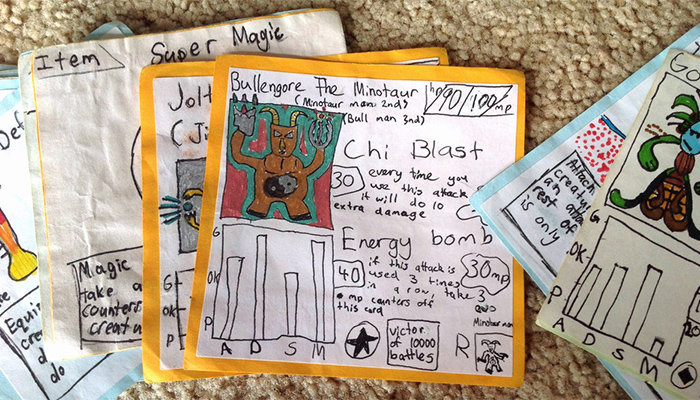 Def
Equi
cre
do
do
Item
Super Magic
Magic
take a
counters
creatu
Jolt
(Ji
G
OK
P
Bullengore The Minotaur
(Minotaur man 2nd)
(Bull man 3rd)
hp 90/100 mp
Chi Blast
30
every time you
use this attack
it will do 10
extra damage
Energy bomb
40
if this attack is
used 3 times
in a row take 3
mp counters off
this card
30mp
G
OK
P
A D S M
victor
of 10000
battles
R
Minotaur man
Attach
creatur
an atta
rest of
is only
Go
G
OK
P
A D S M